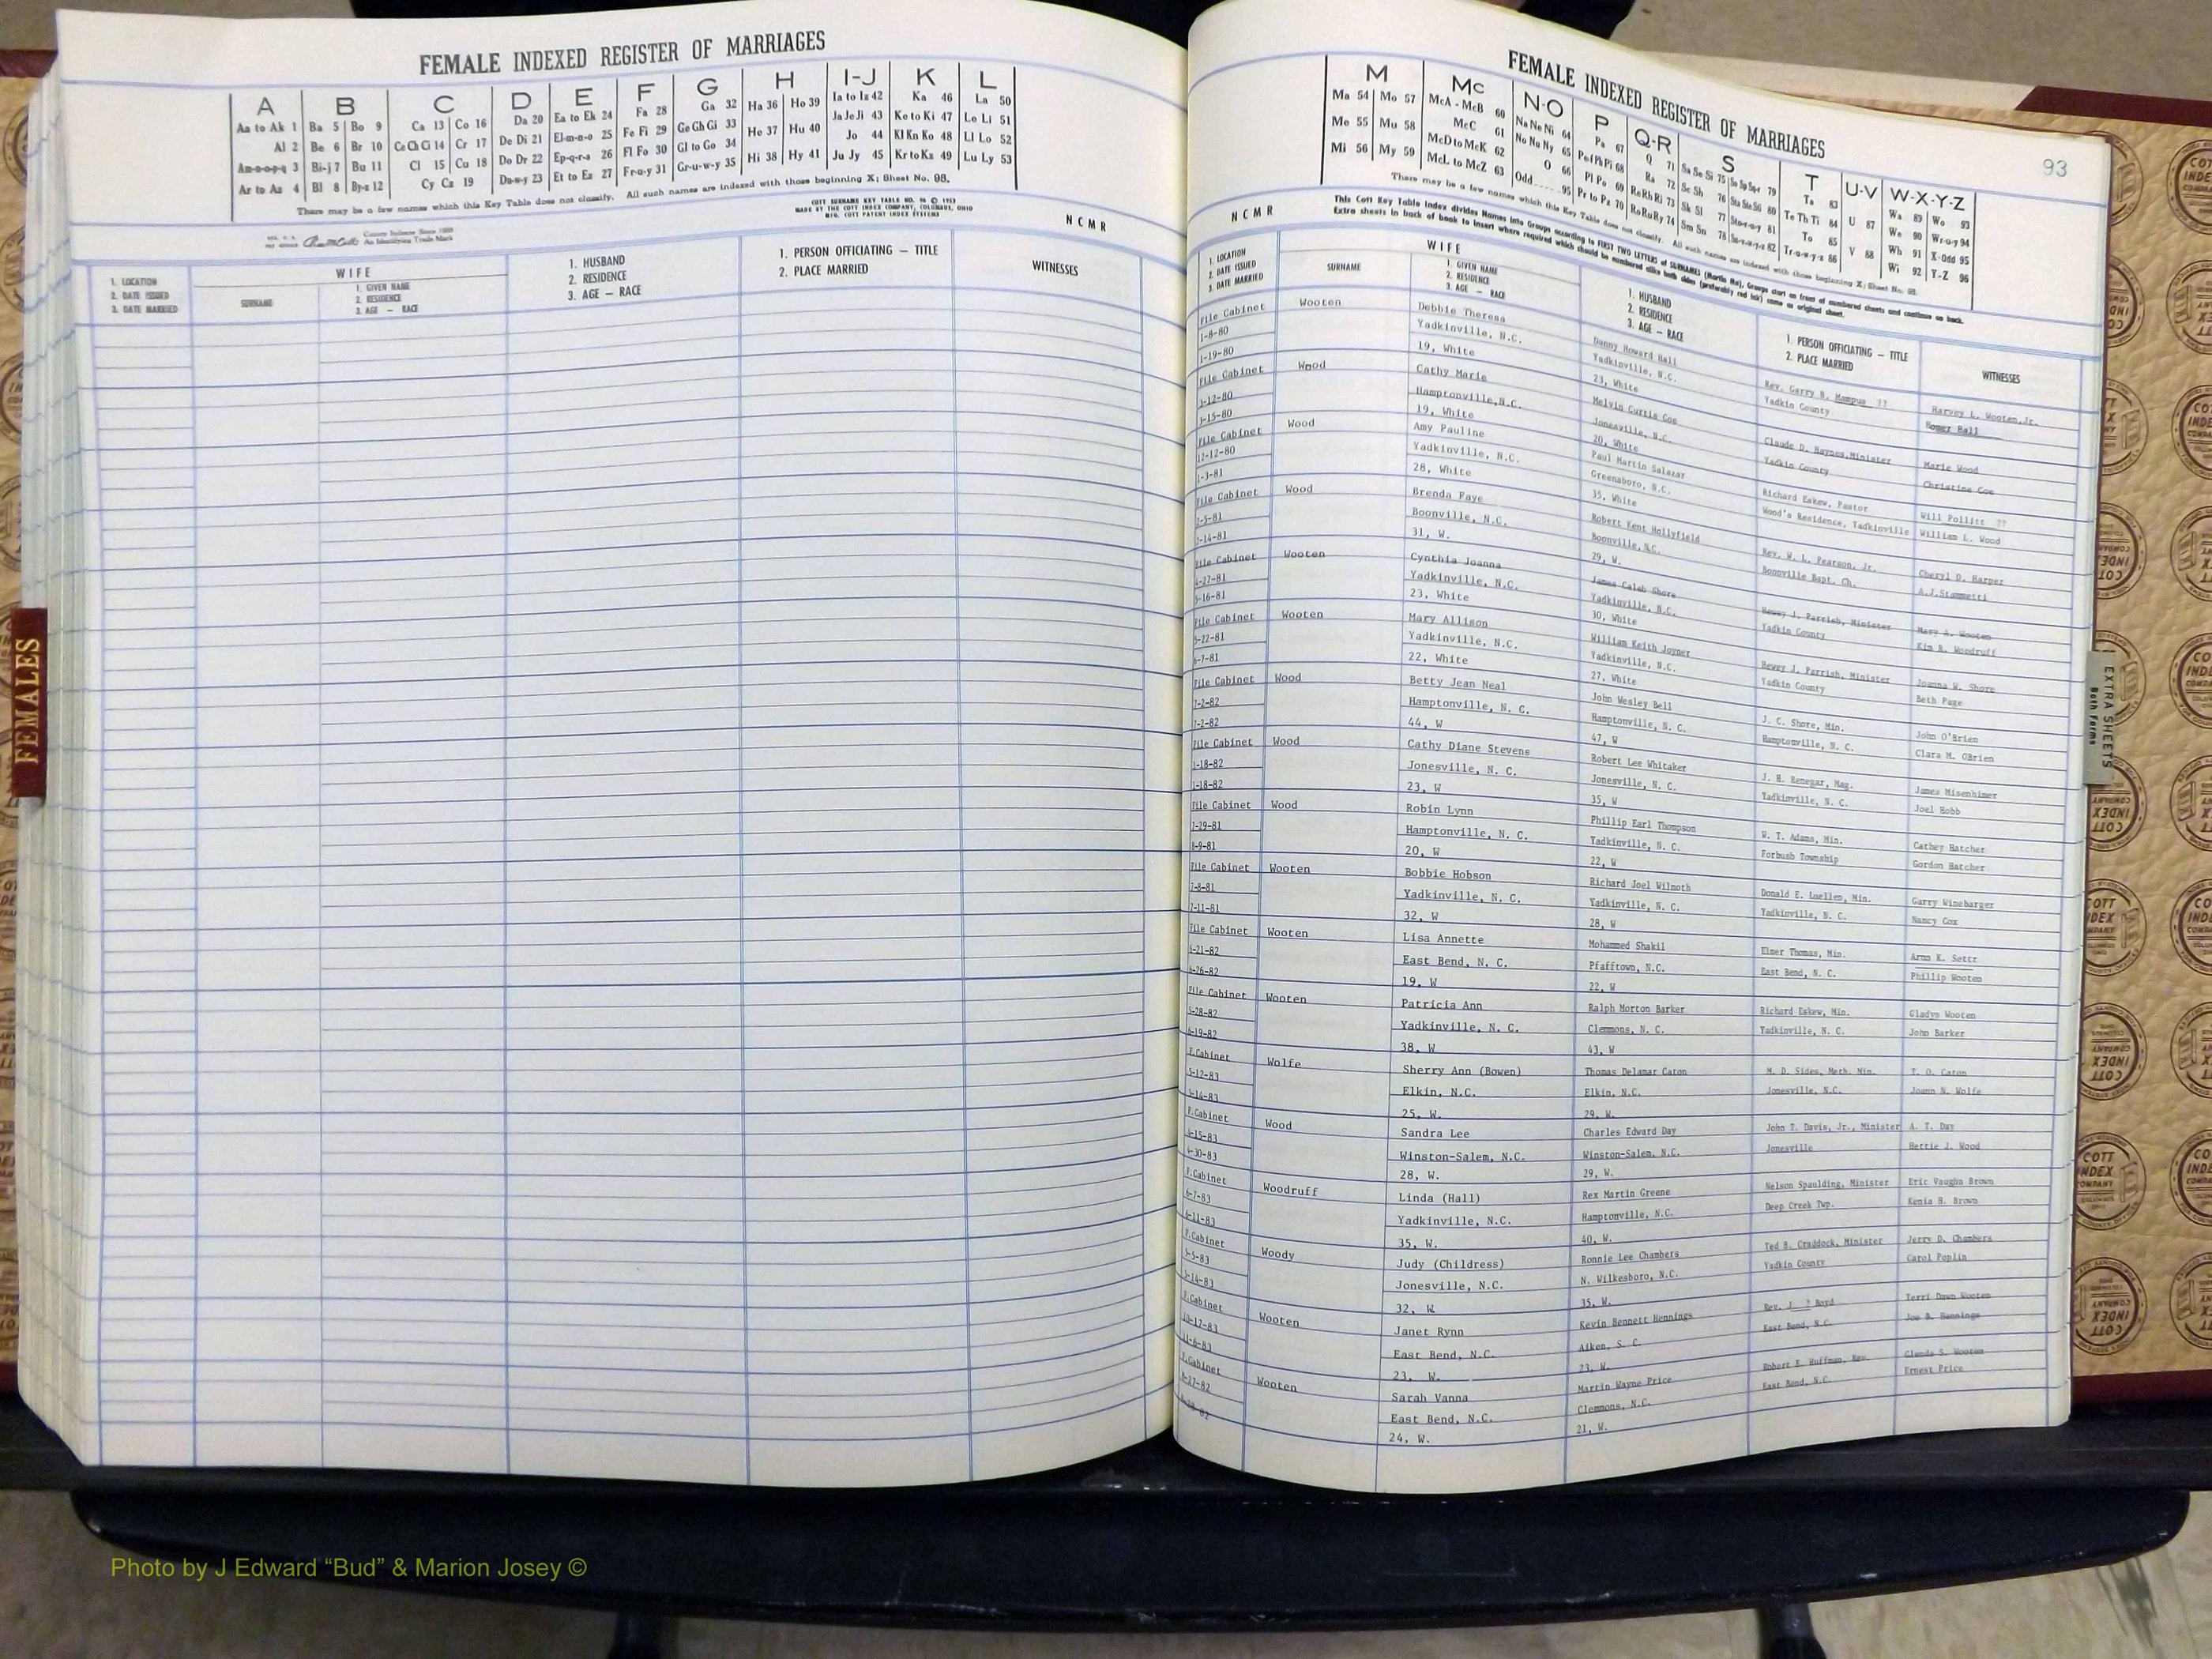 FEMALE INDEXED REGISTER OF MARRIAGES
A B C D E F G H I-J K L
Aa to Ak 1 Ba 5 Bo 9 Ca 13 Co 16 Da 20 Ea to Ek 24 Fa 28 Ga 32 Ha 36 Ho 39 Ia to Iz 42 Ka 46 La 50
Al 2 Be 6 Br 10 Ce Ch Ci 14 Cr 17 De Di 21 El-m-n-o 25 Fe Fi 29 Ge Gh Gi 33 He 37 Hu 40 Ja Je Ji 43 Ke to Ki 47 Le Li 51
Am-n-o-p-q 3 Bi-j 7 Bu 11 Cl 15 Cu 18 Do Dr 22 Ep-q-r-s 26 Fl Fo 30 Gl to Go 34 Hi 38 Hy 41 Jo 44 Kl Kn Ko 48 Ll Lo 52
Ar to Az 4 Bl 8 By-z 12 Cy Cz 19 Du-w-y 23 Et to Ez 27 Fr-u-y 31 Gr-u-w-y 35 Ju Jy 45 Kr to Kz 49 Lu Ly 53
There may be a few names which this Key Table does not classify. All such names are indexed with those beginning X; Sheet No. 98.
COTT SURNAME KEY TABLE NO. 96 © 1953
MADE BY THE COTT INDEX COMPANY, COLUMBUS, OHIO
MFG. COTT PATENT INDEX SYSTEMS
N C M R
County Indexes Since 1888
An Identifying Trade Mark
1. LOCATION
2. DATE ISSUED
3. DATE MARRIED
WIFE
SURNAME
1. GIVEN NAME
2. RESIDENCE
3. AGE — RACE
1. HUSBAND
2. RESIDENCE
3. AGE — RACE
1. PERSON OFFICIATING — TITLE
2. PLACE MARRIED
WITNESSES
FEMALES
FEMALE INDEXED REGISTER OF MARRIAGES
93
M Mc N-O P Q-R S T U-V W-X-Y-Z
Ma 54 Mo 57 McA - McB 60 Na Ne Ni 64 Pa 67 Q 71 Sa Se Si 75 So Sp Sq-r 79 Ta 83 U 87 Wa 89 Wo 93
Me 55 Mu 58 McC 61 No Nu Ny 65 Pe Pf Ph Pi 68 Ra 72 Sc Sh 76 Sta Ste Sti 80 Te Th Ti 84 V 88 We 90 Wr-u-y 94
Mi 56 My 59 McD to McK 62 O 66 Pl Po 69 Re Rh Ri 73 Sk Sl 77 Sto-r-u-y 81 To 85 Wh 91 X-Odd 95
McL to McZ 63 Odd 95 Pr to Pz 70 Ro Ru Ry 74 Sm Sn 78 Su-v-w-y-z 82 Tr-u-w-y-z 86 Wi 92 Y-Z 96
There may be a few names which this Key Table does not classify. All such names are indexed with those beginning X; Sheet No. 98.
N C M R
This Cott Key Table Index divides Names into Groups according to FIRST TWO LETTERS of SURNAMES (Martin Ma), Groups start on front of numbered sheets and continue on back.
Extra sheets in back of book to insert where required which should be numbered alike both sides (preferably red ink) same as original sheet.
1. LOCATION
2. DATE ISSUED
3. DATE MARRIED
WIFE
SURNAME
1. GIVEN NAME
2. RESIDENCE
3. AGE — RACE
1. HUSBAND
2. RESIDENCE
3. AGE — RACE
1. PERSON OFFICIATING — TITLE
2. PLACE MARRIED
WITNESSES
File Cabinet Wooten Debbie Theresa Danny Howard Hall Rev. Garry B. Mampus ?? Harvey L. Wooten,Jr.
1-8-80 Yadkinville, N.C. Yadkinville, N.C. Yadkin County Homer Hall
1-19-80 19, White 23, White
File Cabinet Wood Cathy Marie Melvin Curtis Coe Claude D. Haynes,Minister Marie Wood
3-12-80 Hamptonville,N.C. Jonesville, N.C. Yadkin County Christine Coe
3-15-80 19, White 20, White
File Cabinet Wood Amy Pauline Paul Martin Salazar Richard Eskew, Pastor Will Pollitt ??
12-12-80 Yadkinville, N.C. Greensboro, N.C. Wood's Residence, Yadkinville William L. Wood
1-3-81 28, White 35, White
File Cabinet Wood Brenda Faye Robert Kent Hollyfield Rev. W. L. Pearson, Jr. Cheryl D. Harper
2-5-81 Boonville, N.C. Boonville, N.C. Boonville Bapt. Ch. A.J.Stammetti
2-14-81 31, W. 29, W.
File Cabinet Wooten Cynthia Joanna James Caleb Shore Hewey J. Parrish, Minister Mary A. Wooten
4-27-81 Yadkinville, N.C. Yadkinville, N.C. Yadkin County Kim R. Woodruff
5-16-81 23, White 30, White
File Cabinet Wooten Mary Allison William Keith Joyner Hewey J. Parrish, Minister Joanna W. Shore
5-22-81 Yadkinville, N.C. Yadkinville, N.C. Yadkin County Beth Page
6-7-81 22, White 27, White
File Cabinet Wood Betty Jean Neal John Wesley Bell J. C. Shore, Min. John O'Brien
7-2-82 Hamptonville, N. C. Hamptonville, N. C. Hamptonville, N. C. Clara M. OBrien
7-2-82 44, W 47, W
File Cabinet Wood Cathy Diane Stevens Robert Lee Whitaker J. H. Renegar, Mag. James Misenhimer
1-18-82 Jonesville, N. C. Jonesville, N. C. Yadkinville, N. C. Joel Hobb
1-18-82 23, W 35, W
File Cabinet Wood Robin Lynn Phillip Earl Thompson W. T. Adams, Min. Cathey Hatcher
7-29-81 Hamptonville, N. C. Yadkinville, N. C. Forbush Township Gordon Hatcher
8-9-81 20, W 22, W
File Cabinet Wooten Bobbie Hobson Richard Joel Wilmoth Donald E. Loellen, Min. Garry Winebarger
7-8-81 Yadkinville, N. C. Yadkinville, N. C. Yadkinville, N. C. Nancy Cox
7-11-81 32, W 28, W
File Cabinet Wooten Lisa Annette Mohammed Shakil Elmer Thomas, Min. Arno K. Settr
6-21-82 East Bend, N. C. Pfafftown, N.C. East Bend, N. C. Phillip Wooten
6-26-82 19, W 22, W
File Cabinet Wooten Patricia Ann Ralph Morton Barker Richard Eskew, Min. Gladys Wooten
5-28-82 Yadkinville, N. C. Clemmons, N. C. Yadkinville, N. C. John Barker
6-19-82 38, W 43, W
F.Cabinet Wolfe Sherry Ann (Bowen) Thomas Delamar Caton M. D. Sides, Meth. Min. T. O. Caton
5-12-83 Elkin, N.C. Elkin, N.C. Jonesville, N.C. Joann N. Wolfe
5-14-83 25, W. 29, W.
F.Cabinet Wood Sandra Lee Charles Edward Day John T. Davis, Jr., Minister A. T. Day
4-15-83 Winston-Salem, N.C. Winston-Salem, N.C. Jonesville Bettie J. Wood
4-30-83 28, W. 29, W.
F.Cabinet Woodruff Linda (Hall) Rex Martin Greene Nelson Spaulding, Minister Eric Vaughn Brown
6-7-83 Yadkinville, N.C. Hamptonville, N.C. Deep Creek Twp. Kenia H. Brown
6-11-83 35, W. 40, W.
F.Cabinet Woody Judy (Childress) Ronnie Lee Chambers Ted B. Craddock, Minister Jerry D. Chambers
5-5-83 Jonesville, N.C. N. Wilkesboro, N.C. Yadkin County Carol Poplin
5-14-83 32, W 35, W.
F.Cabinet Wooten Janet Rynn Kevin Bennett Hennings Rev. J__?_Boyd Terri Dawn Wooten
10-17-83 East Bend, N.C. Aiken, S. C. East Bend, N.C. Joe B. Hennings
11-6-83 23, W. 23, W.
F.Cabinet Wooten Sarah Vanna Martin Wayne Price Robert E. Huffman, Rev. Glenda S. Wooten
8-27-82 East Bend, N.C. Clemmons, N.C. East Bend, N.C. Ernest Price
24, W. 21, W.
EXTRA SHEETS
Both Forms
Photo by J Edward “Bud” & Marion Josey ©